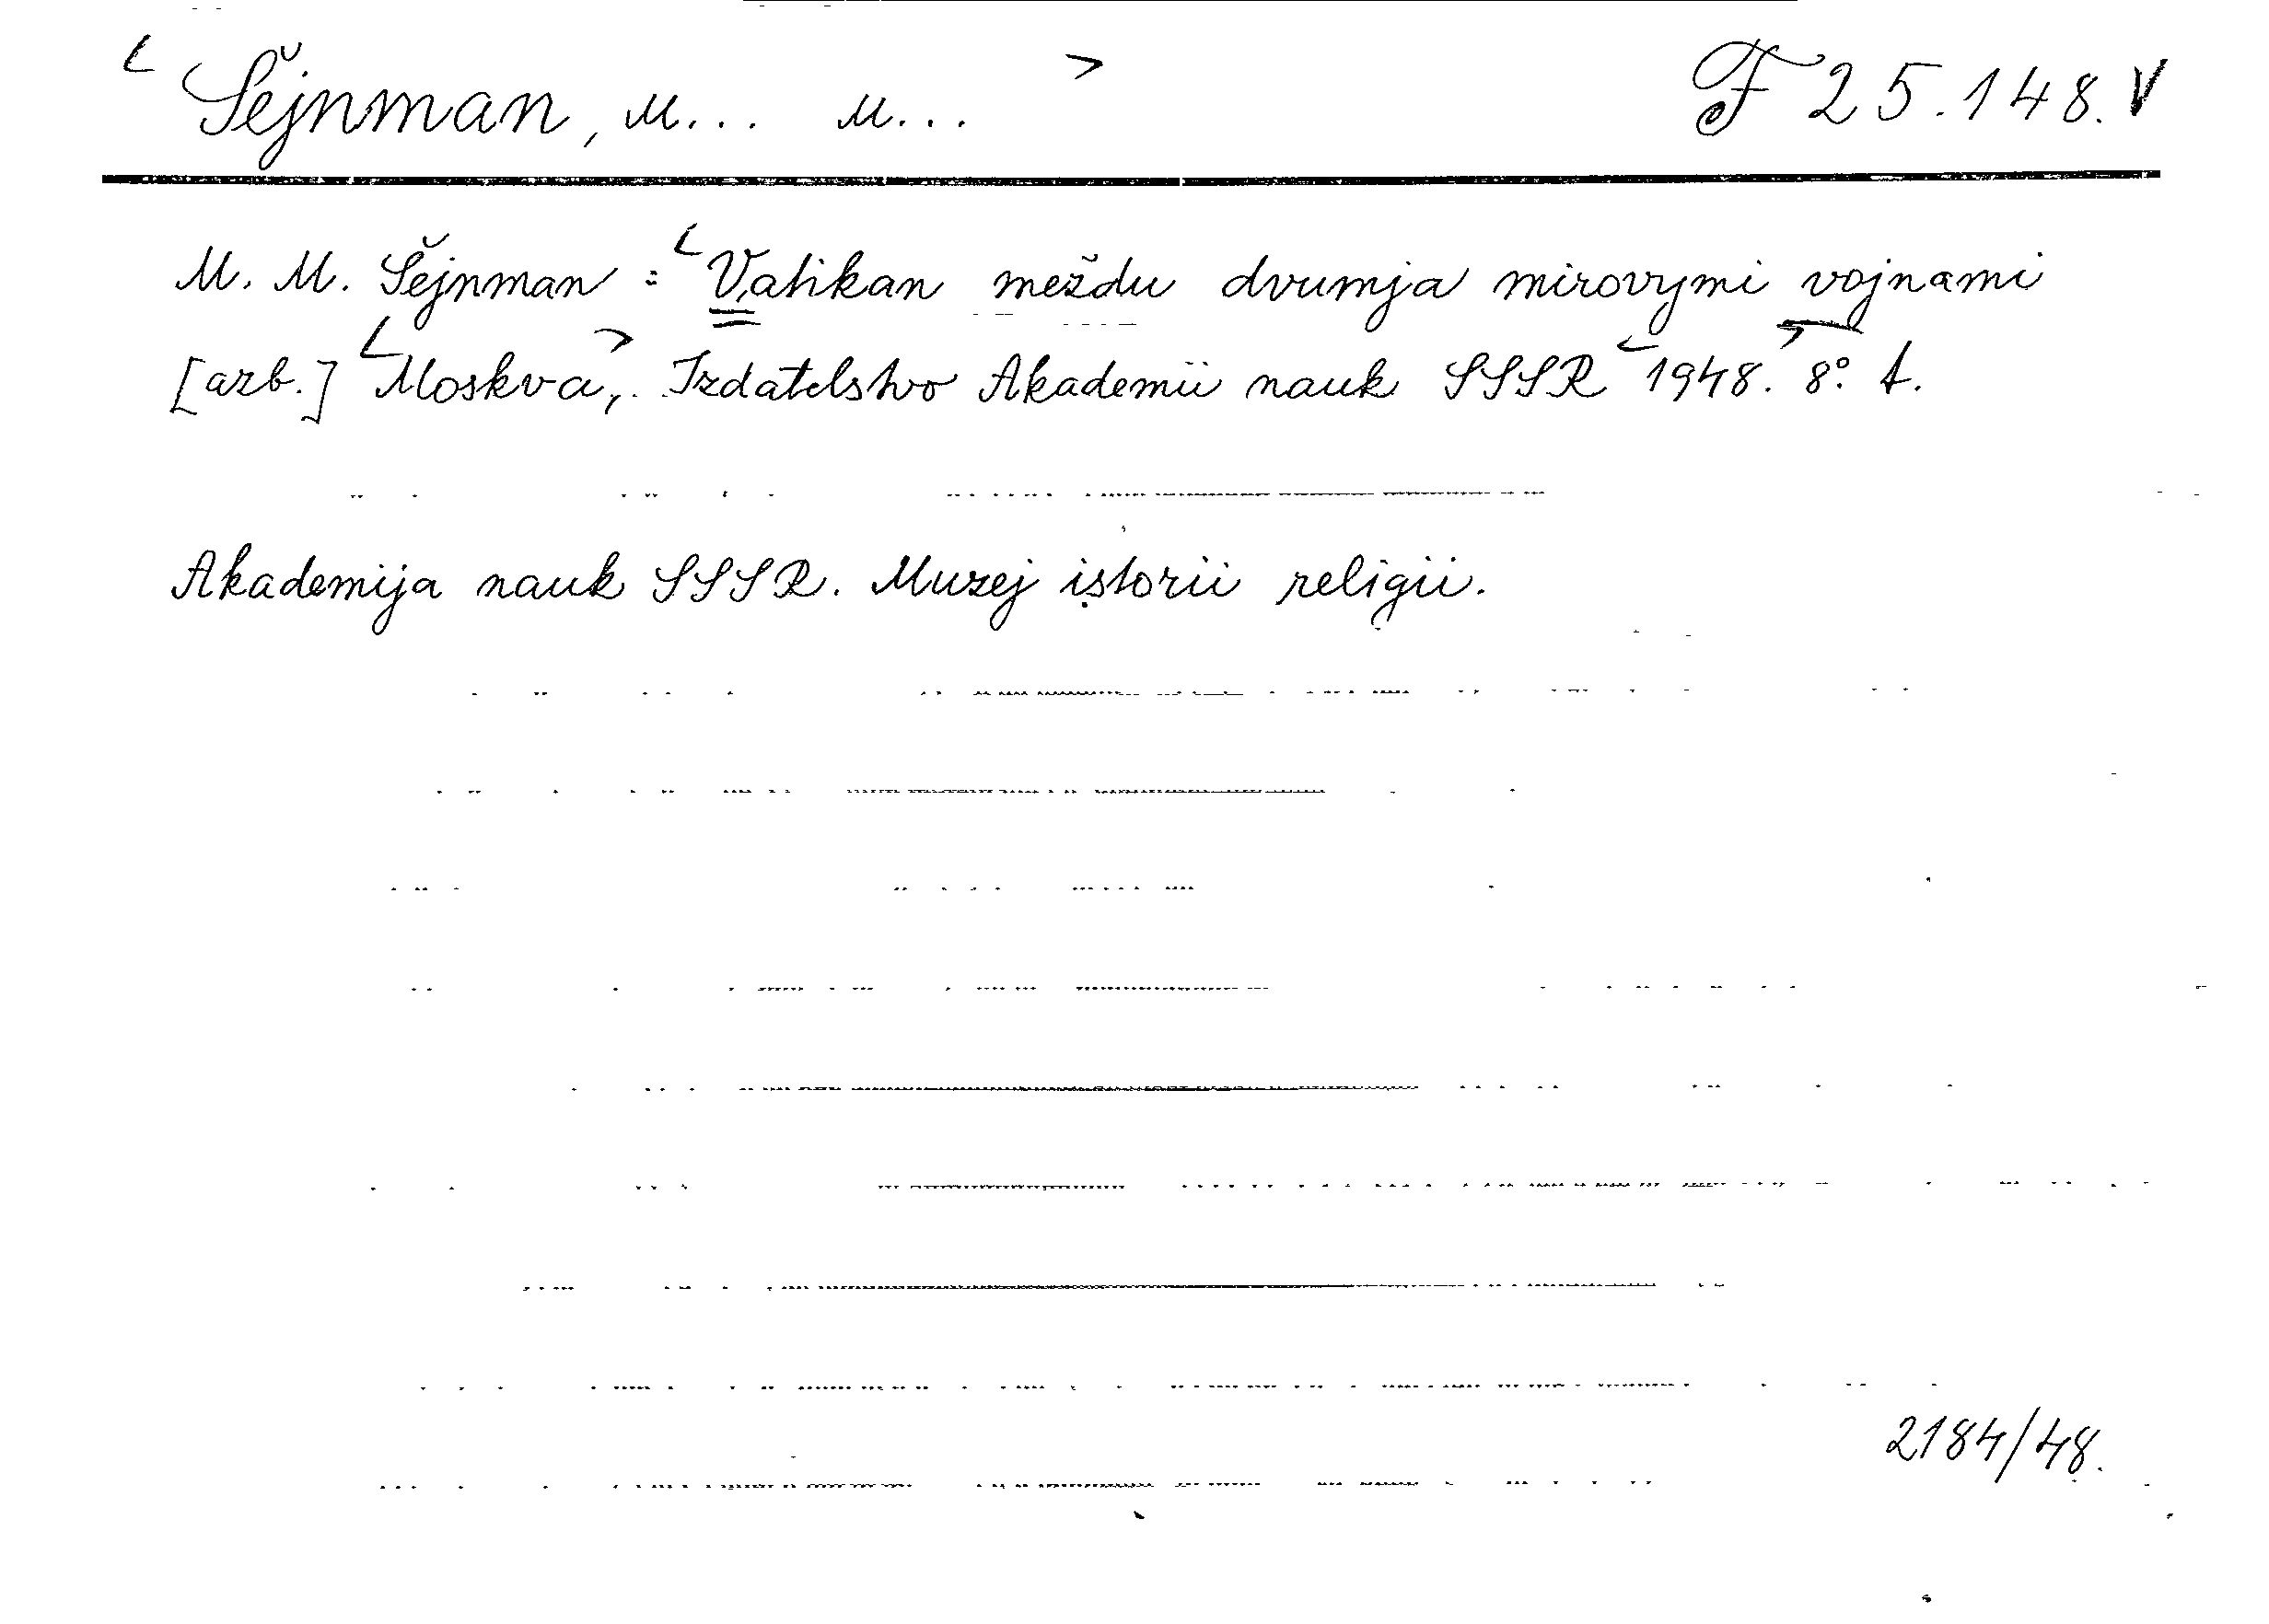 Šejnman, M... M... F 25.148. V
M. M. Šejnman : Vatikan meždu dvumja mirovymi vojnami
[azb.] Moskva, Izdatelstvo Akademii nauk SSSR 1948. 8° t.
Akademija nauk SSSR. Muzej istorii religii.
2184/48.